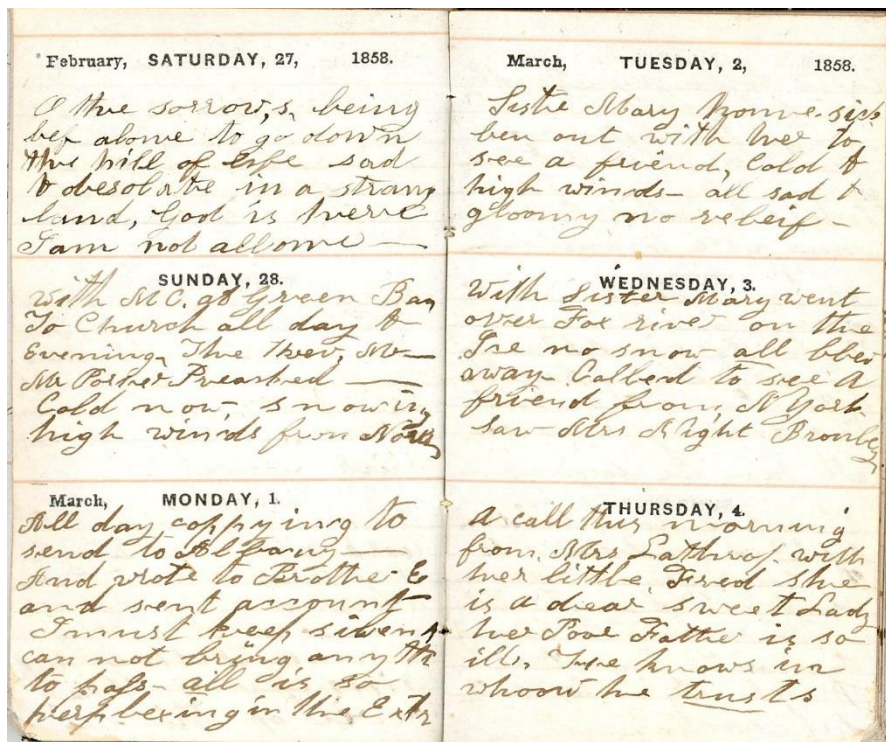 February, SATURDAY, 27, 1858.
O the sorrow,s, being
alone to go down
the hill of life sad
& desolate in a strang
land, God is there
I am not allone —
SUNDAY, 28.
With MC. at Green Bay
To Church all day &
Evening. The Rev, Mr —
Mr Porter Preached —
Cold now - snowing
high winds from North
March, MONDAY, 1.
All day coppying to
send to Albany —
And wrote to Brother E
and sent account
I must keep
can not bring any
to pass - all is so
perplexing in the Extr
March, TUESDAY, 2, 1858.
Siste Mary home-sick
ben out with her to
see a friend, Cold &
high winds - all sad &
gloomy no releif -
WEDNESDAY, 3.
With Sister Mary went
over Fox river on the
Ice no snow all
away. Called to see A
friend from, N York
Saw Mrs
THURSDAY, 4.
A call this morning
from, Mrs Lathrop. with
her little Fred she
is a dear sweet Lady
her Poor Father is so
ill, knows in
whoom he trusts